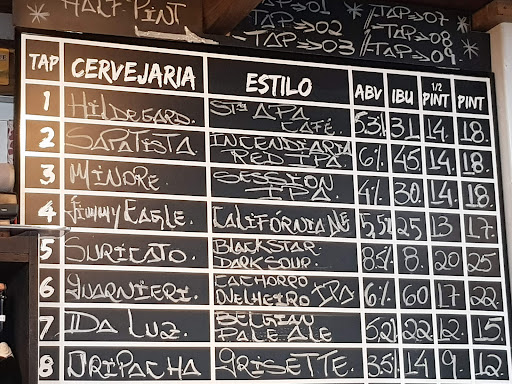 HALF-PINT
TAP→01
TAP→02
TAP→03
TAP→07
TAP→08
TAP→09
TAP CERVEJARIA ESTILO ABV IBU 1/2 PINT PINT
1 HILDEGARD. APA CAFÉ. 5.3% 31 14. 18.
2 SAPATISTA INCENDIÁRIA RED IPA. 6% 45 14. 18.
3 MINDRE. SESSION IPA. 4% 30. 14. 18.
4 Jimmy EAGLE. CALIFÓRNIA 5,5% 25 13 17.
5 SURICATO. BLACKSTAR. DARK SOUR. 8.5% 8. 20 25
6 GUARNIERI. CACHORRO OVELHEIRO IPA 6% 60 17 22.
7 DA LUZ. BELGIAN PALE ALE 5,2% 22. 12. 15.
8 ORIPACHA GRISETTE. 3.5% 14 9. 12